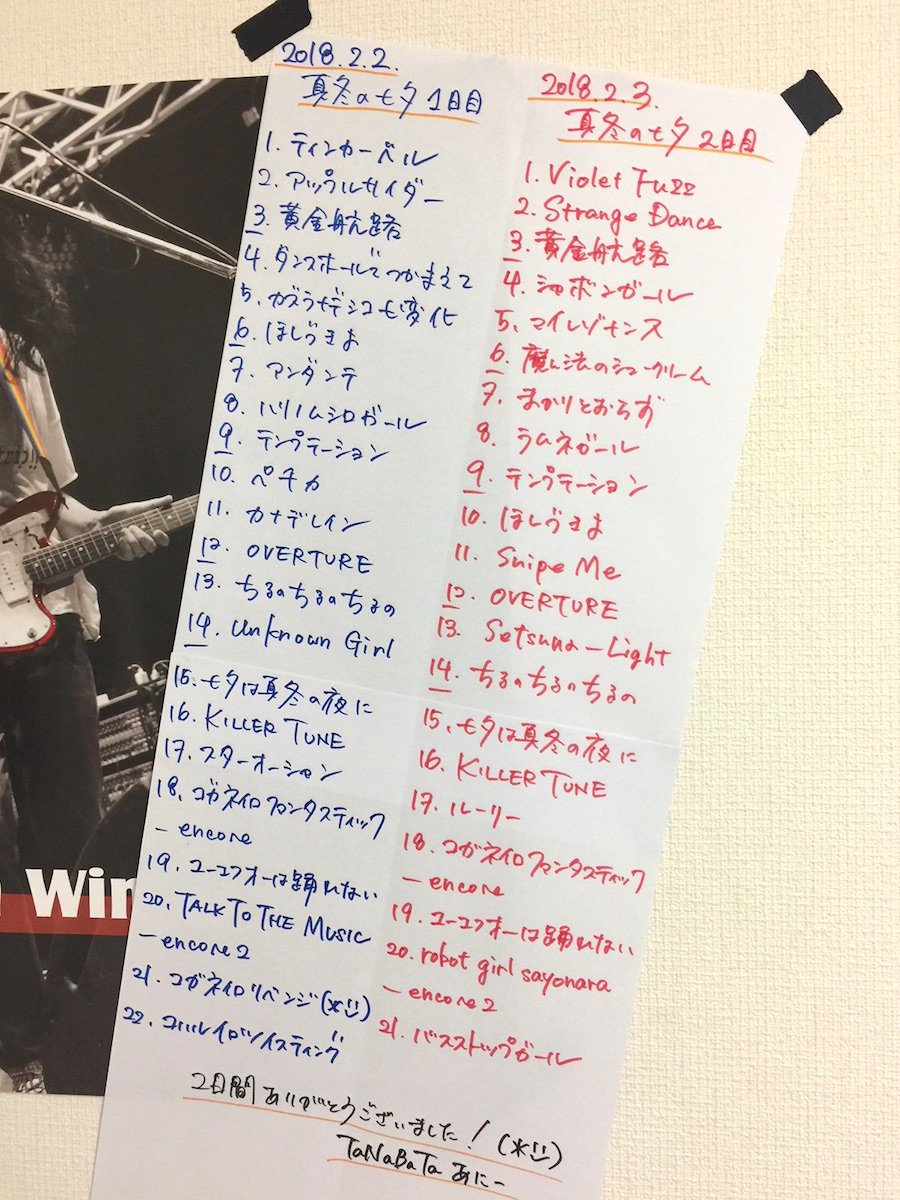 2018.2.2.
真冬の七夕 1日目
1. ティンカーベル
2. アップルサイダー
3. 黄金航路
4. ダンスホールでつかまえて
5. カズラナデシコ七変化
6. ほしづきよ
7. アンダンテ
8. ハリノムシロガール
9. テンプテーション
10. ペチカ
11. カナデレイン
12. OVERTURE
13. ちるのちるのちるの
14. Unknown Girl
15. 七夕は真冬の夜に
16. KILLER TUNE
17. スターオーシャン
18. コガネイロファンタスティック
— encore
19. ユーエフオーは踊れない
20. TALK TO THE MUSIC
— encore 2
21. コガネイロリベンジ(*ii)
22. コハルイロツイスティング
2018.2.3.
真冬の七夕 2日目
1. Violet Fuzz
2. Strange Dance
3. 黄金航路
4. シャボンガール
5. マイレゾナンス
6. 魔法のシュークリーム
7. まかりとおらず
8. ラムネガール
9. テンプテーション
10. ほしづきよ
11. Snipe Me
12. OVERTURE
13. Setsuna-Light
14. ちるのちるのちるの
15. 七夕は真冬の夜に
16. KILLER TUNE
17. ルーリー
18. コガネイロファンタスティック
— encore
19. ユーエフオーは踊れない
20. robot girl sayonara
— encore 2
21. バスストップガール
2日間ありがとうございました! (*ii)
TaNaBaTa あにー
Win